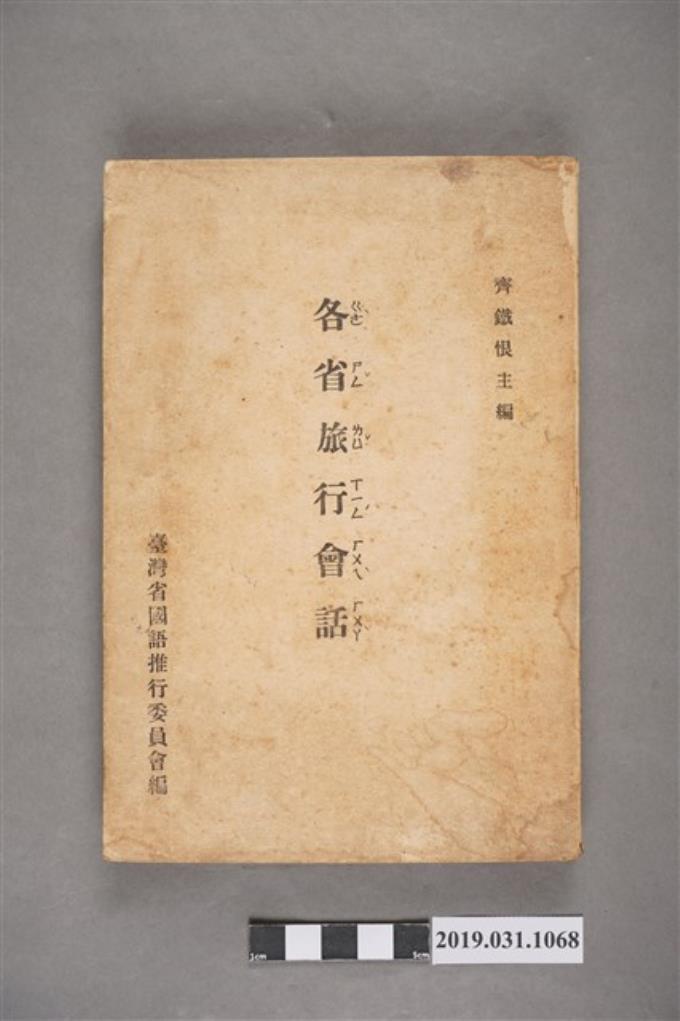 齊鐵恨主編
各省旅行會話
ㄍㄜˋ ㄕㄥˇ ㄌㄩˇ ㄒㄧㄥˊ ㄏㄨㄟˋ ㄏㄨㄚˋ
臺灣省國語推行委員會編
1cm 5cm
2019.031.1068